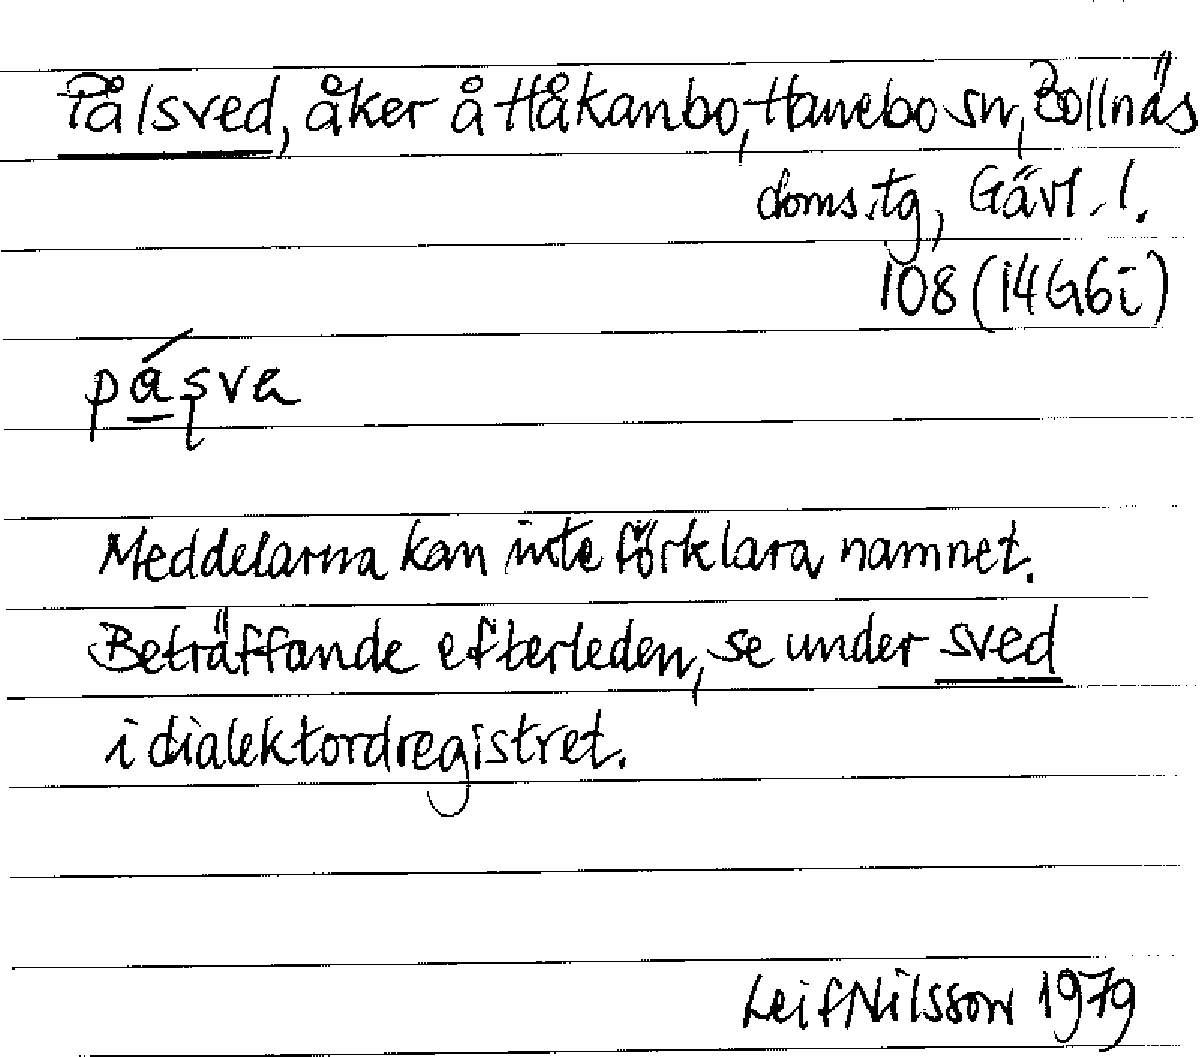 Pålsved, åker å Håkanbo, Hanebo sn, Bollnäs
doms.tg, Gävl. l.
108 (14G6i)
pá̱ʂva
Meddelarna kan inte förklara namnet.
Beträffande efterleden, se under sved
i dialektordregistret.
Leif Nilsson 1979